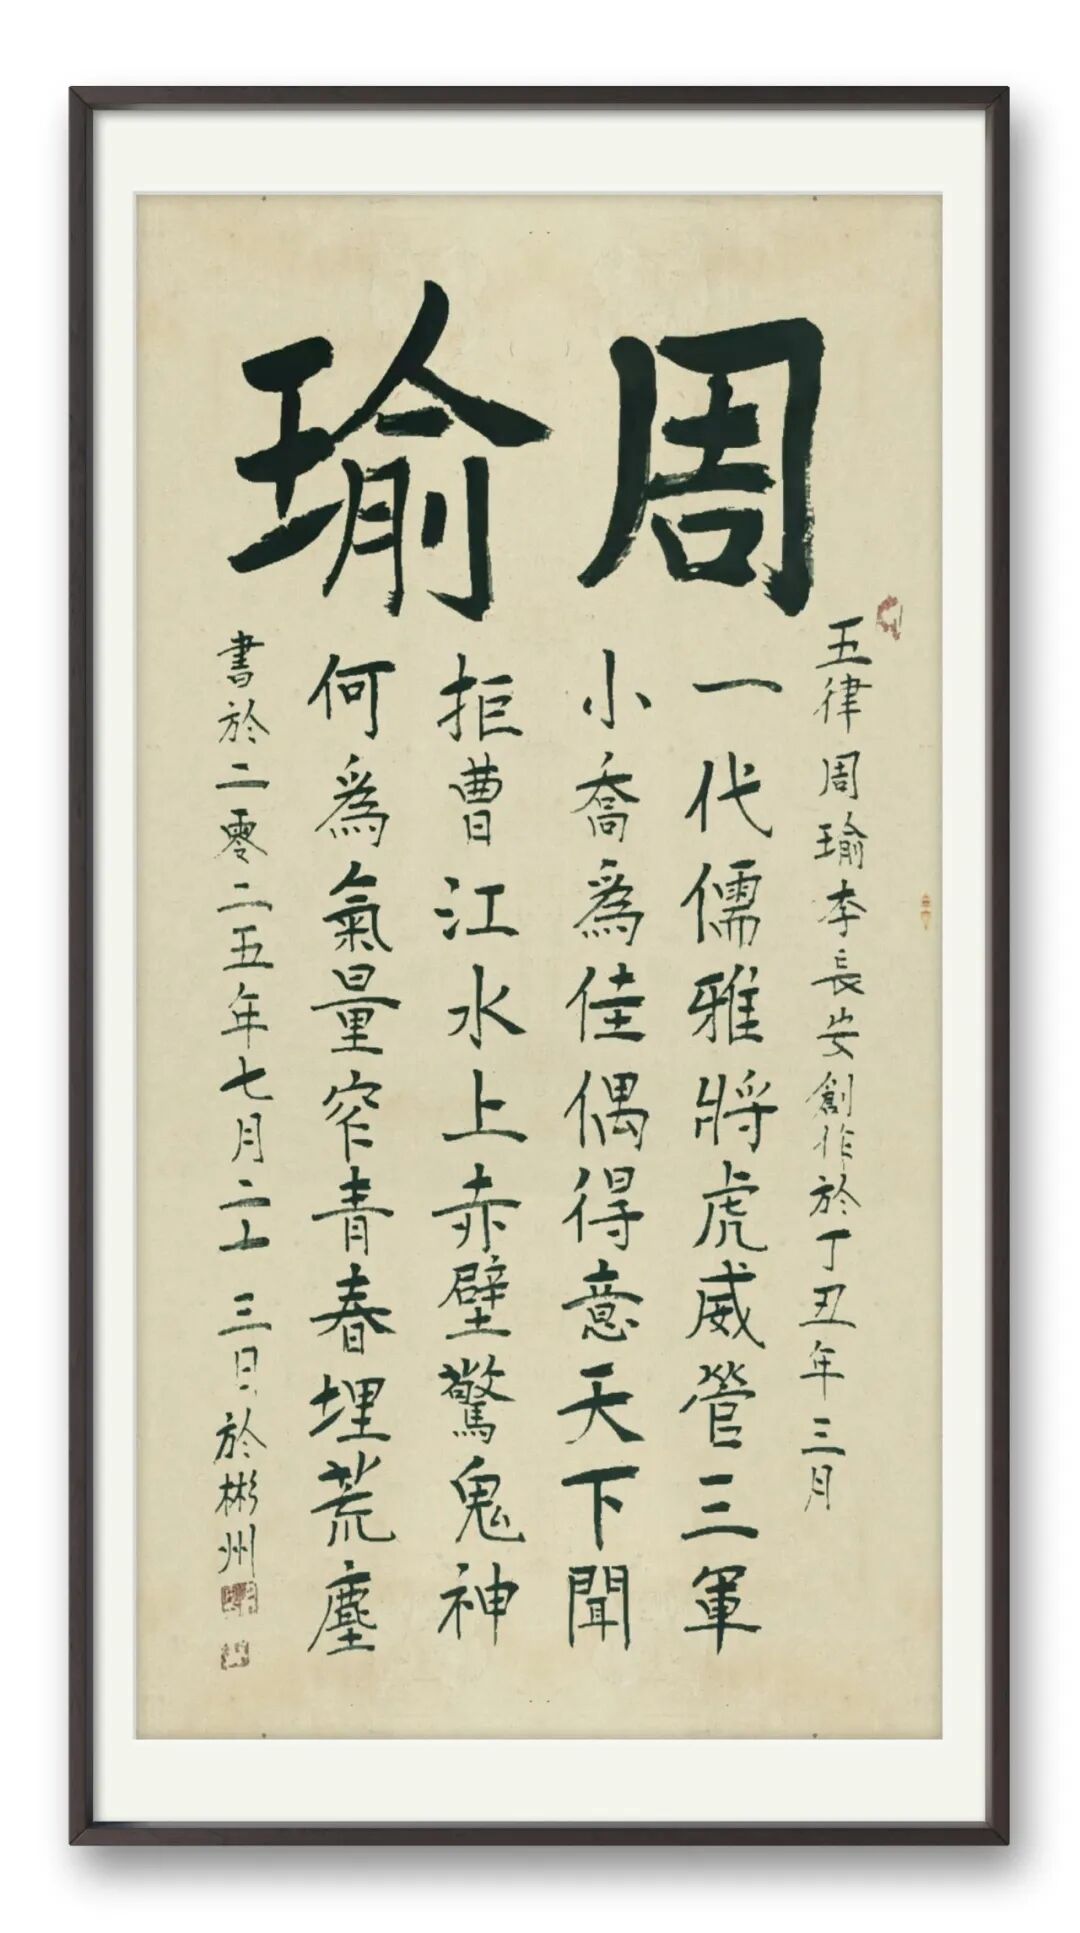 周瑜
五律周瑜李長安創作於丁丑年三月
一代儒雅將虎威管三軍
小喬為佳偶得意天下聞
拒曹江水上赤壁驚鬼神
何為氣量窄青春埋荒塵
書於二零二五年七月二十三日於彬州